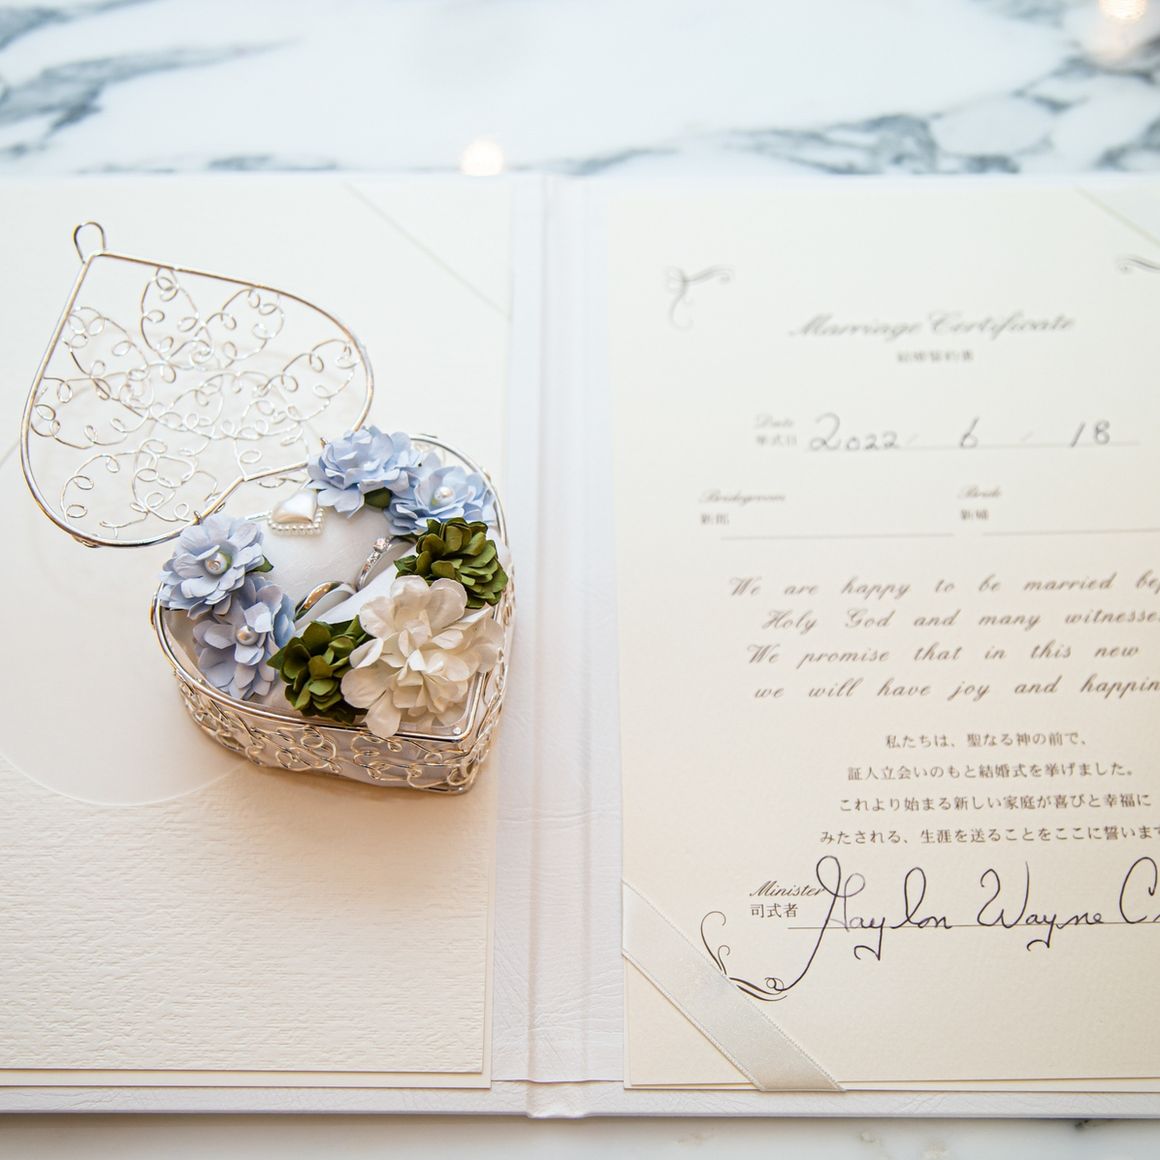 Marriage Certificate
結婚誓約書
Date
挙式日
2022 6 18
Bridegroom Bride
新郎 新婦
We are happy to be married be
Holy God and many witnesse
We promise that in this new
we will have joy and happin
私たちは、聖なる神の前で、
証人立会いのもと結婚式を挙げました。
これより始まる新しい家庭が喜びと幸福に
みたされる、生涯を送ることをここに誓います
Minister
司式者
Gaylon Wayne C